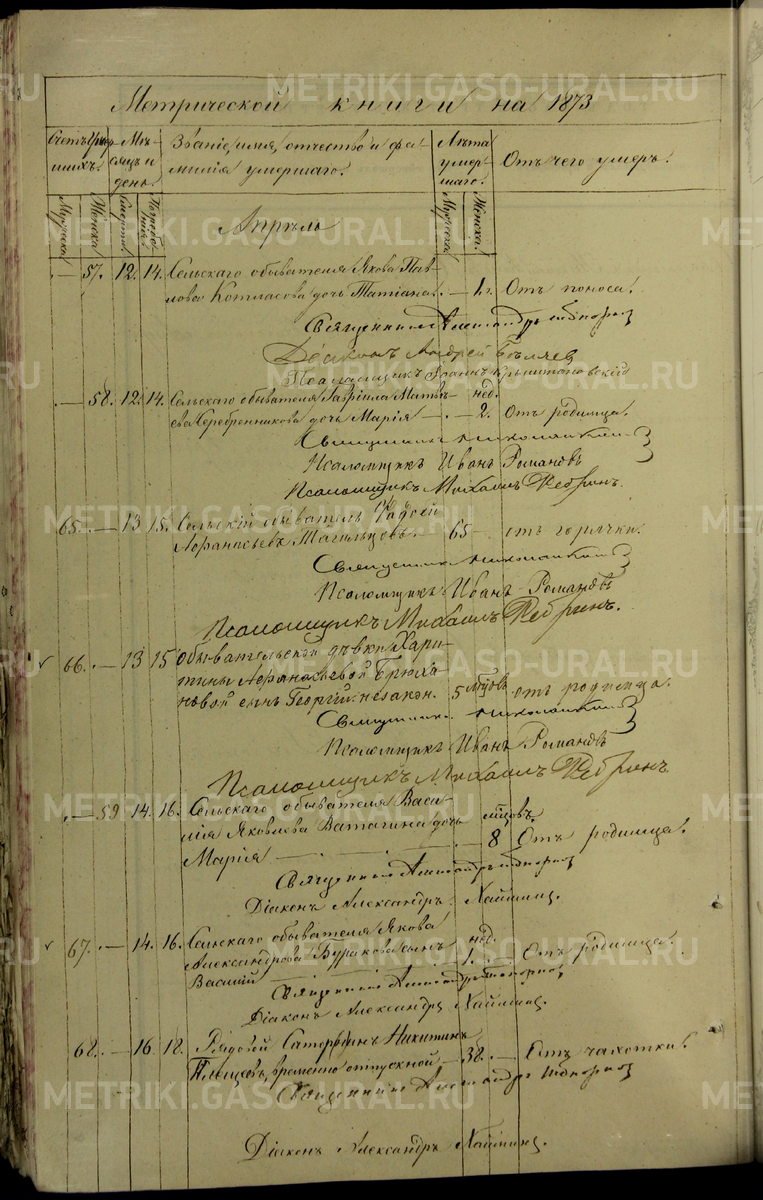 Метрической книги на 1873
Счетъ умер-
шихъ.
Мѣ-
сяцъ и
день.
Званіе, имя, отчество и фа-
милія умершаго.
Лѣта
умер-
шаго.
Отъ чего умеръ.
Мужеска.
Женска.
Смерти.
Погребе-
нія.
Мужеска.
Женска.
Апрѣль
— 57. 12. 14. Сельскаго обывателя Якова Пав-
лова Котласова дочь Татіана. — 1 г. Отъ поноса.
Священникъ Александръ
Діаконъ Андрей Бѣляев
Псаломщикъ Іоаннъ
— 58. 12. 14. Сельскаго обывателя Гавріила Матвѣ-
нед.
ева Серебренникова дочь Марія — 2. Отъ родимца.
Священникъ
Псаломщикъ Иванъ Романовъ
Псаломщикъ Михаилъ Ребринъ.
65. — 13 15. Сельскій обыватель Фадѣй
Афанасьевъ Магильцовъ. 65 — отъ горячки.
Священникъ
Псаломщикъ Иванъ Романовъ
Псаломщикъ Михаилъ Ребринъ.
66. — 13 15 Обывательской дѣвки Хари-
тины Афанасьевой Брюха-
новой сынъ Георгій. незакон. 5 мѣсцовъ отъ родимца.
Священникъ
Псаломщикъ Иванъ Романовъ
Псаломщикъ Михаилъ Ребринъ
— 59 14. 16. Сельскаго обывателя Васи-
лія Яковлева Ватагина дочь мѣсцовъ.
Марія — 8 Отъ родимца.
Священникъ Александръ
Діаконъ Александръ
67. — 14. 16. Сельскаго обывателя Якова
Александрова Буракова сынъ нед.
Василій 1. — Отъ родимца.
Священникъ Александръ
Діаконъ Александръ
68. — 16. 18. Рядовой Никитинъ
Плещевъ, временно отпускной — 38. — Отъ чахотки.
Священникъ Александръ
Діаконъ Александръ
METRIKI.GASO-URAL.RU